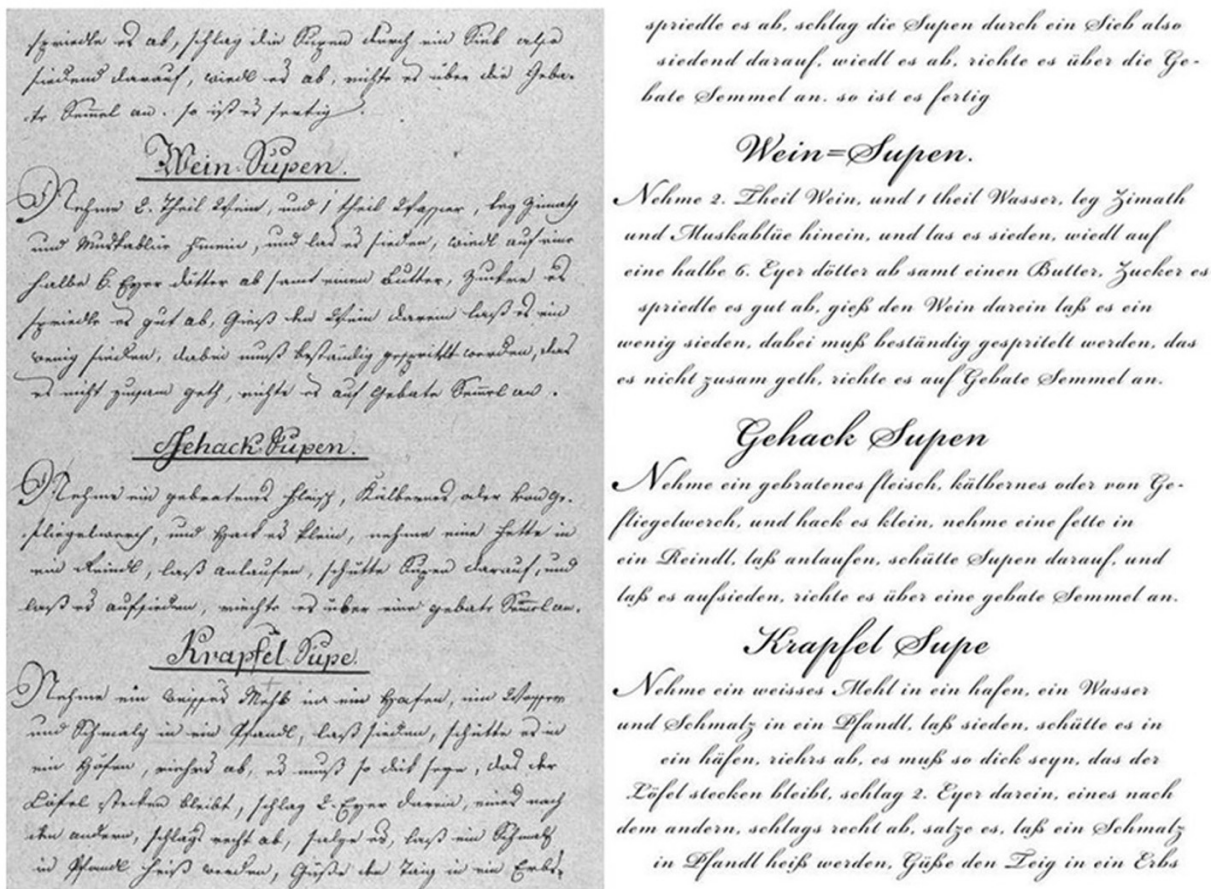 spriedle es ab, schlag die Supen durch ein Sieb also
siedend darauf, wiedl es ab, richte es über die Geba-
te Semmel an. so ist es fertig.
Wein-Supen.
Nehme 2. Theil Wein, und 1 theil Wasser, leg Zimath
und Muskablüe hinein, und las es sieden, wiedl auf eine
halbe 6. Eyer dötter ab samt einen Butter, Zucker es
spriedle es gut ab, Gieß den Wein darein laß es ein
wenig sieden, dabei muß beständig gespritelt werden, das
es nicht zusam geth, richte es auf Gebate Semmel an.
Gehack Supen.
Nehme ein gebratenes fleisch, Kälbernes oder von Ge-
fliegelwerch, und Hack es klein, nehme eine fette in
ein Reindl, laß anlaufen, schütte Supen darauf, und
laß es aufsieden, riechte es über eine gebate Semmel an.
Krapfel Supe.
Nehme ein weisses Mehl in ein Hafen, ein Wasser
und Schmalz in ein Pfandl, laß sieden, schütte es in
ein Höfen, riehrs ab, es muß so dick seyn, das der
Löfel stecken bleibt, schlag 2. Eyer darein, eines nach
den andern, schlags recht ab, salze es, laß ein Schmalz
in Pfandl heiß werden, Güße den Taig in ein Erbs-
spriedle es ab, schlag die Supen durch ein Sieb also
siedend darauf, wiedl es ab, richte es über die Ge-
bate Semmel an. so ist es fertig
Wein=Supen.
Nehme 2. Theil Wein, und 1 theil Wasser, leg Zimath
und Muskablüe hinein, und las es sieden, wiedl auf
eine halbe 6. Eyer dötter ab samt einen Butter, Zucker es
spriedle es gut ab, gieß den Wein darein laß es ein
wenig sieden, dabei muß beständig gespritelt werden, das
es nicht zusam geth, richte es auf Gebate Semmel an.
Gehack Supen
Nehme ein gebratenes fleisch, kälbernes oder von Ge-
fliegelwerch, und hack es klein, nehme eine fette in
ein Reindl, laß anlaufen, schütte Supen darauf, und
laß es aufsieden, richte es über eine gebate Semmel an.
Krapfel Supe
Nehme ein weisses Mehl in ein hafen, ein Wasser
und Schmalz in ein Pfandl, laß sieden, schütte es in
ein häfen, riehrs ab, es muß so dick seyn, das der
Löfel stecken bleibt, schlag 2. Eyer darein, eines nach
dem andern, schlags recht ab, salze es, laß ein Schmalz
in Pfandl heiß werden, Güße den Teig in ein Erbs